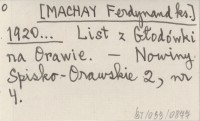 [MACHAY Ferdynand ks.]
1920... List z Głodówki
na Orawie. — Nowiny
Spisko-Orawskie 2, nr
4.